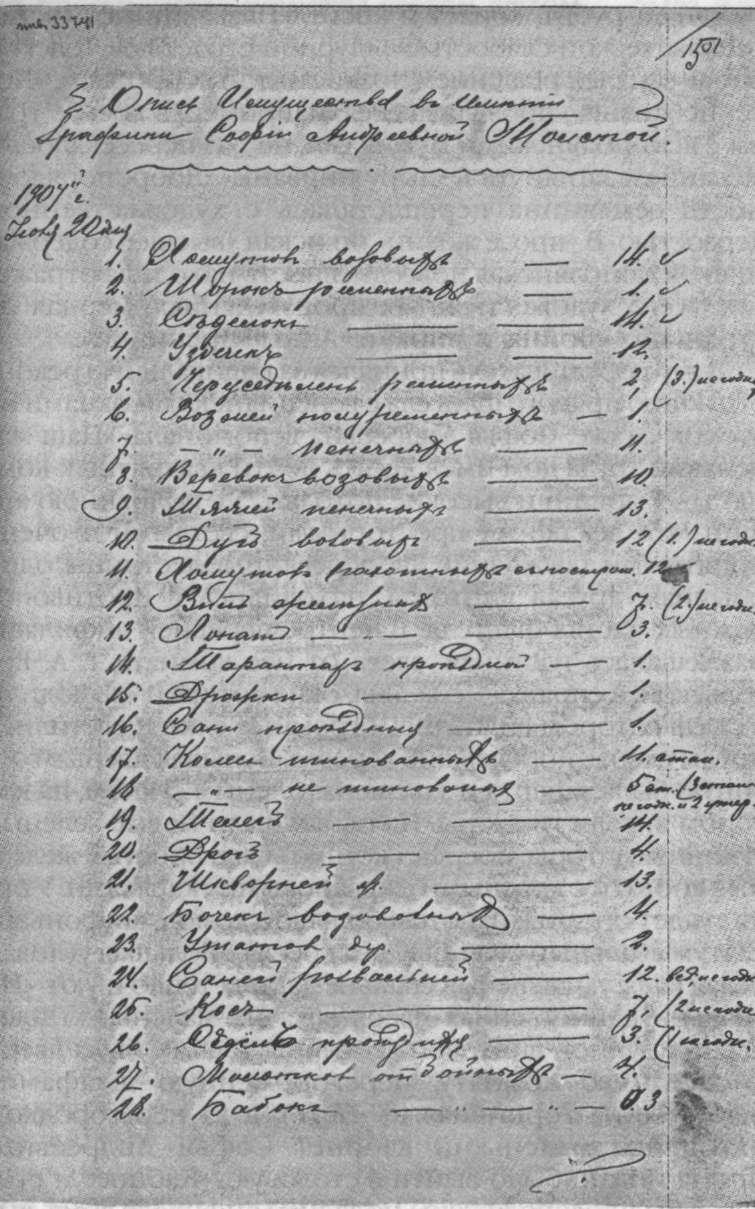 инв. 33741
151
Опись Имущества въ имѣнiи
Графини Софiи Андреевной Толстой.
1907 г.
20 дня
1. Хомутовъ возовыхъ — 14.
2. Шорокъ ременныхъ — 1.
3. Сѣделокъ — 14.
4. Уздечекъ — 12.
5. Чересѣделень ременныхъ 2, (3.) негодн.
6. Возжей полуременныхъ — 1.
7. — „ — пенечныхъ — 11.
8. Веревокъ возовыхъ — 10.
9. Тяжей пенечныхъ — 13.
10. Дугъ возовыхъ — 12 (1.) негодн.
11. Хомутовъ рабочихъ 12
12. Вилъ желѣзныхъ — 7. (2.) негодн.
13. Лопатъ — 3.
14. Тарантасъ проѣздной — 1.
15. Дрожки — 1.
16. Сани проѣздныя — 1.
17. Колесъ шинованныхъ — 11. стан.
18 — „ — не шинованыхъ — 5 ст. (3 стан.
негодн. и 2
19. Телегъ — 14.
20. Дрогъ — 4.
21. Шкворней — 13.
22. Бочекъ водовозныхъ — 4.
23. Ушатовъ дер. — 2.
24. Саней розвальней — 12. негодн.
25. Косъ — 7, (2 негодн.
26. Сѣдělъ — 3. (1 негодн.
27. Молотковъ отбойныхъ — 4.
28. Бабокъ — „ — „ — 3